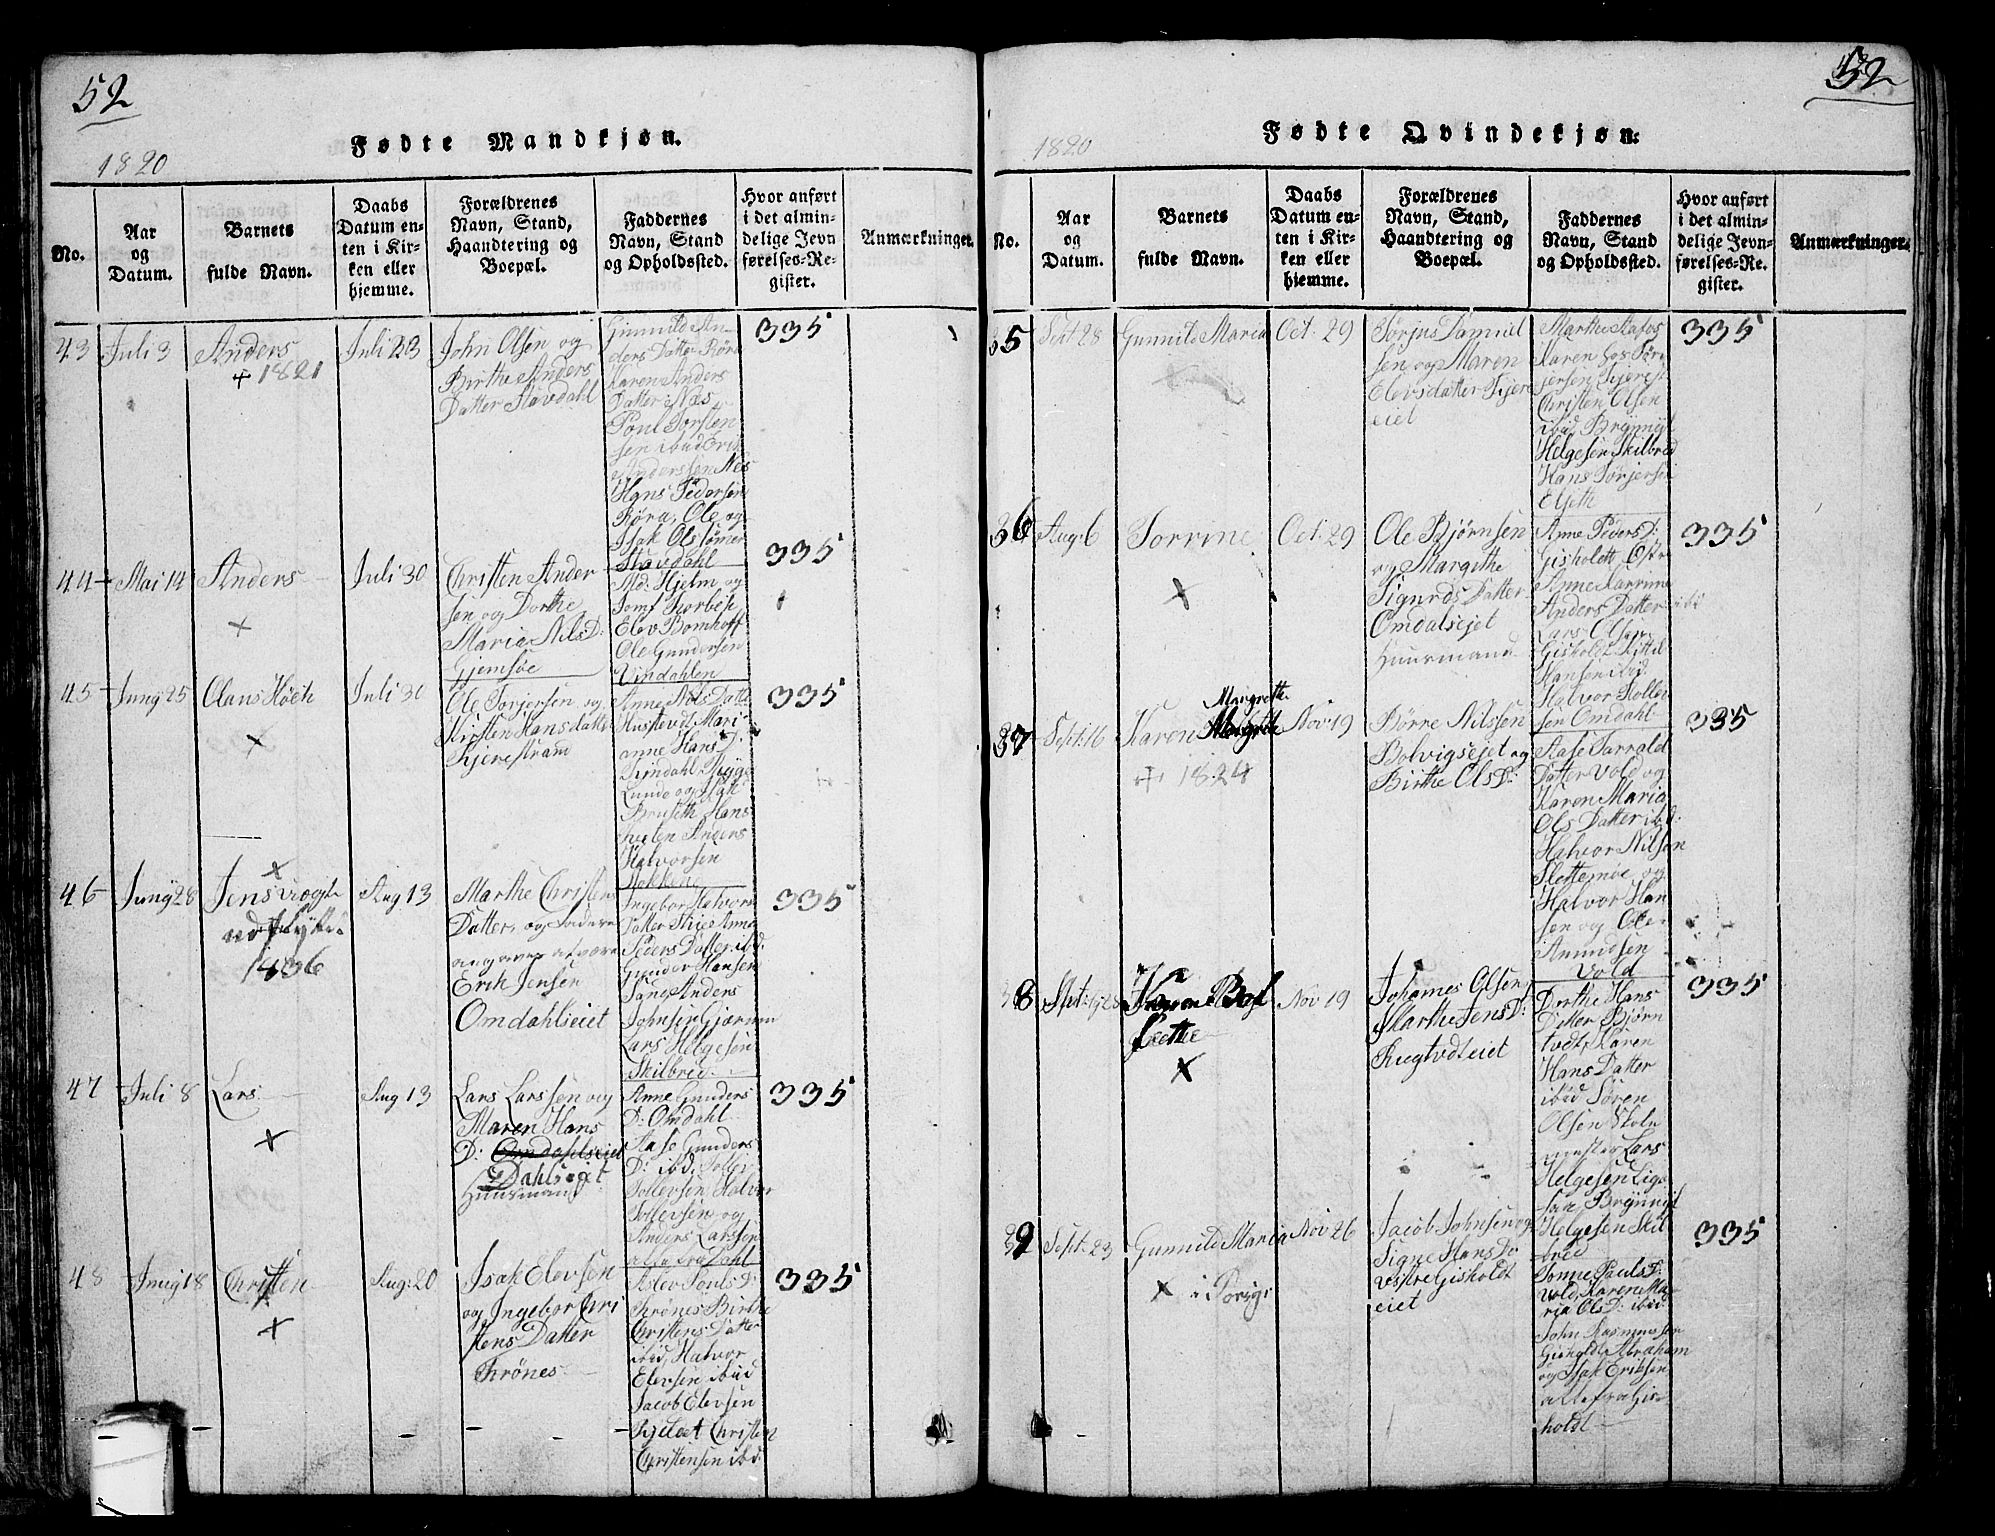 52
Fødte Mandkjøn.
1820
No.
Aar
og
Datum.
Barnets
fulde Navn.
Daabs
Datum en-
ten i Kir-
ken eller
hjemme.
Forældrenes
Navn, Stand,
Haandtering og
Boepæl.
Faddernes
Navn, Stand
og Opholdssted.
Hvor anført
i det almin-
delige Jevn
førelses-Re-
gister.
Anmærkninger.
43
Juli 3
Anders
+ 1821
Juli 23
John Olsen og
Birthe Anders
Datter Stavdahl
Gunnild An-
ders Datter Røra
Karen Anders
Datter Næs
Poul Torsten
sen ibid Erik
Anderssen Næs
Hans Pedersen
Røra, Ole og
Isak Olssønner
Stavdahl
335
44
Mai 14
Anders
Juli 30
Christen Ander
sen og Dorthe
Maria Nils D:
Gjemsøe
Md: Hjelm og
Jomf Thorbese
Elev Bomhoff
Ole Gundersen
Vindahlen
335
45
Juny 25
Olans Höeh
Juli 30
Ole Torjersen og
Kirsten Hansdatter
Kjerestram
Anne Nils Datter
Hustevdt Mari-
anne Hans D:
Lunde og Isak
Bruseth Hans
Anders
Halvorsen
Nokken
335
46
Juny 28
Jens vægt
udflytt:
1836
Aug 13
Marthe Christens
Datter, og Fadere
angaves at være
Erik Jensen
Omdahlseiet
Ingebor Halvors
Datter Stie Anne
Peders Datter ibd:
Gunder Hansen
Anders
Johnsen Gjærmen
Lars Helgesen
Skilbred
335
47
Juli 8
Lars
Aug 13
Lars Larssen og
Maren Hans
D: Omdahlseiet
Dahlseiet
Huusmand
Anne Gunders
D: Omdahl
Aase Gunders
D: ibd, Tollev
Tollevsen, Halvor
Tollevsen og
Anders Larssen
alle fra Dahl
335
48
Juny 18
Christen
Aug: 20
Isak Elevsen
og Ingebor Chri
stens Datter
Krönes
Aslev Pouls D:
Krönes Birthe
Christens Datter
ibid, Halvor
Elevsen ibid
Jacob Elevsen
Christen
Christensen ibd:
335
52
Fødte Qvindekjøn:
1820
No.
Aar
og
Datum.
Barnets
fulde Navn.
Daabs
Datum en-
ten i Kir-
ken eller
hjemme.
Forældrenes
Navn, Stand,
Haandtering og
Boepæl.
Faddernes
Navn, Stand
og Opholdssted.
Hvor anført
i det almin-
delige Jevn-
førelses-Re
gister.
Anmærkninger.
35
Sept 28
Gunnild Maria
Oct. 29
Törjus Samuel
sen og Maren
Elevsdatter Kjere
eiet
Marthe Aafos
Karen hos Tör-
jersen Kjerest
Christen Olsen
ibid, Brynnil
Helgesen Skilbred
Hans Törjersen
Elseth
335
36
Aug: 6
Torrine
Oct: 29
Ole Bjørnsen
og Margithe
Sigurds Datter
Omdalsejet
Huusmand
Anne Peders D:
Gisholdt Østre
Anne Karrine
Anders Datter ibi
Lars Olsen
Gisholdt Kittel
Hansen ibid.
Halvor Tollev
sen Omdahl
335
37
Sept: 16
Karen Margrethe
+ 1824
Nov 19
Börre Nilssen
Bolvigsejet og
Birthe Ols D:
Aase Tarrald
Datter Vold og
Karen Maria
Ols Datter ibd:
Halvor Nilsen
Slettemöe og
Halvor Han
sen og Ole
Amundsen
Vold
335
38
Karen
Nov 19
Johames Olsen
Marthe Jens D:
Rugtvdteiet
Dorthe Hans
Datter Bjørn
tvdt, Karen
Hans Datter
ibid Sören
Olsen Skole
mester Lars
Helgesen
Brynnild
Helgesen Skil
bred
335
39
Sept: 23
Gunnild Maria
i Porsgr
Nov 26
Jacob Johnsen og
Signe Hans D
vestre Gisholdt
eiet
Tonne Pauls D:
Vold, Karen Ma
ria Ols D: ibid
John Rasmussen
Gisholdt Abraham
og Isak Eriksen
alle fra Gis-
holdt
335